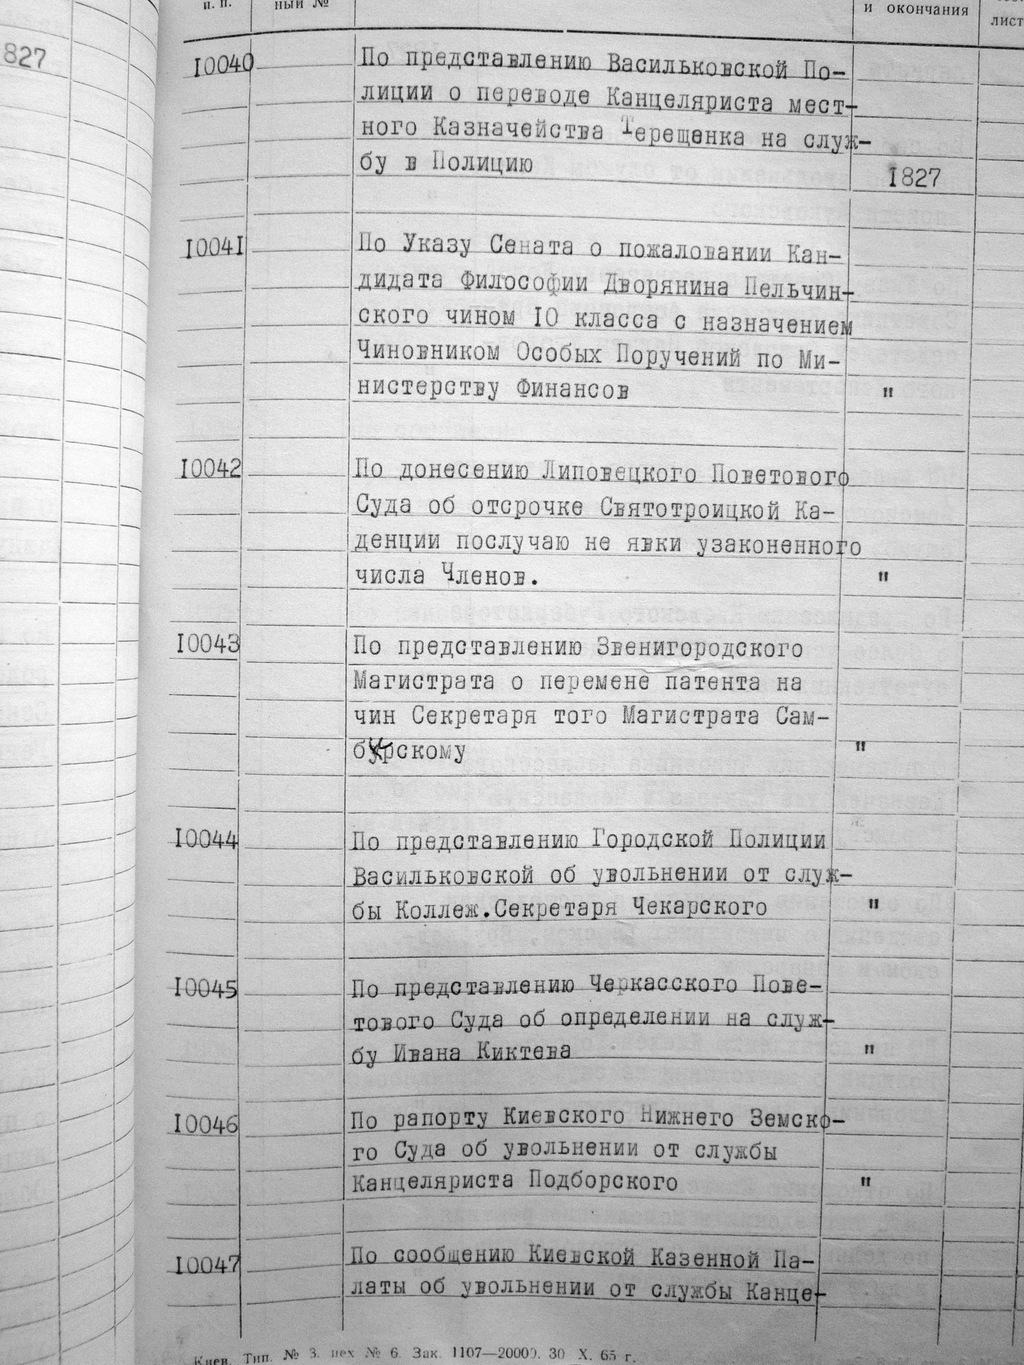 п. п.
ный №
и окончания
лист
827
10040
По представлению Васильковской По-
лиции о переводе Канцеляриста мест-
ного Казначейства Терещенка на служ-
бу в Полицию
1827
10041
По Указу Сената о пожаловании Кан-
дидата Философии Дворянина Пельчин-
ского чином 10 класса с назначением
Чиновником Особых Поручений по Ми-
нистерству Финансов "
10042
По донесению Липовецкого Поветового
Суда об отсрочке Святотроицкой Ка-
денции послучаю не явки узаконенного
числа Членов. "
10043
По представлению Звенигородского
Магистрата о перемене патента на
чин Секретаря того Магистрата Сам-
бурскому "
10044
По представлению Городской Полиции
Васильковской об увольнении от служ-
бы Коллеж.Секретаря Чекарского "
10045
По представлению Черкасского Пове-
тового Суда об определении на служ-
бу Ивана Киктева "
10046
По рапорту Киевского Нижнего Земско-
го Суда об увольнении от службы
Канцеляриста Подборского "
10047
По сообщению Киевской Казенной Па-
латы об увольнении от службы Канце-
Киев. Тип. № 3. цех № 6. Зак. 1107—20000. 30 X. 65 г.